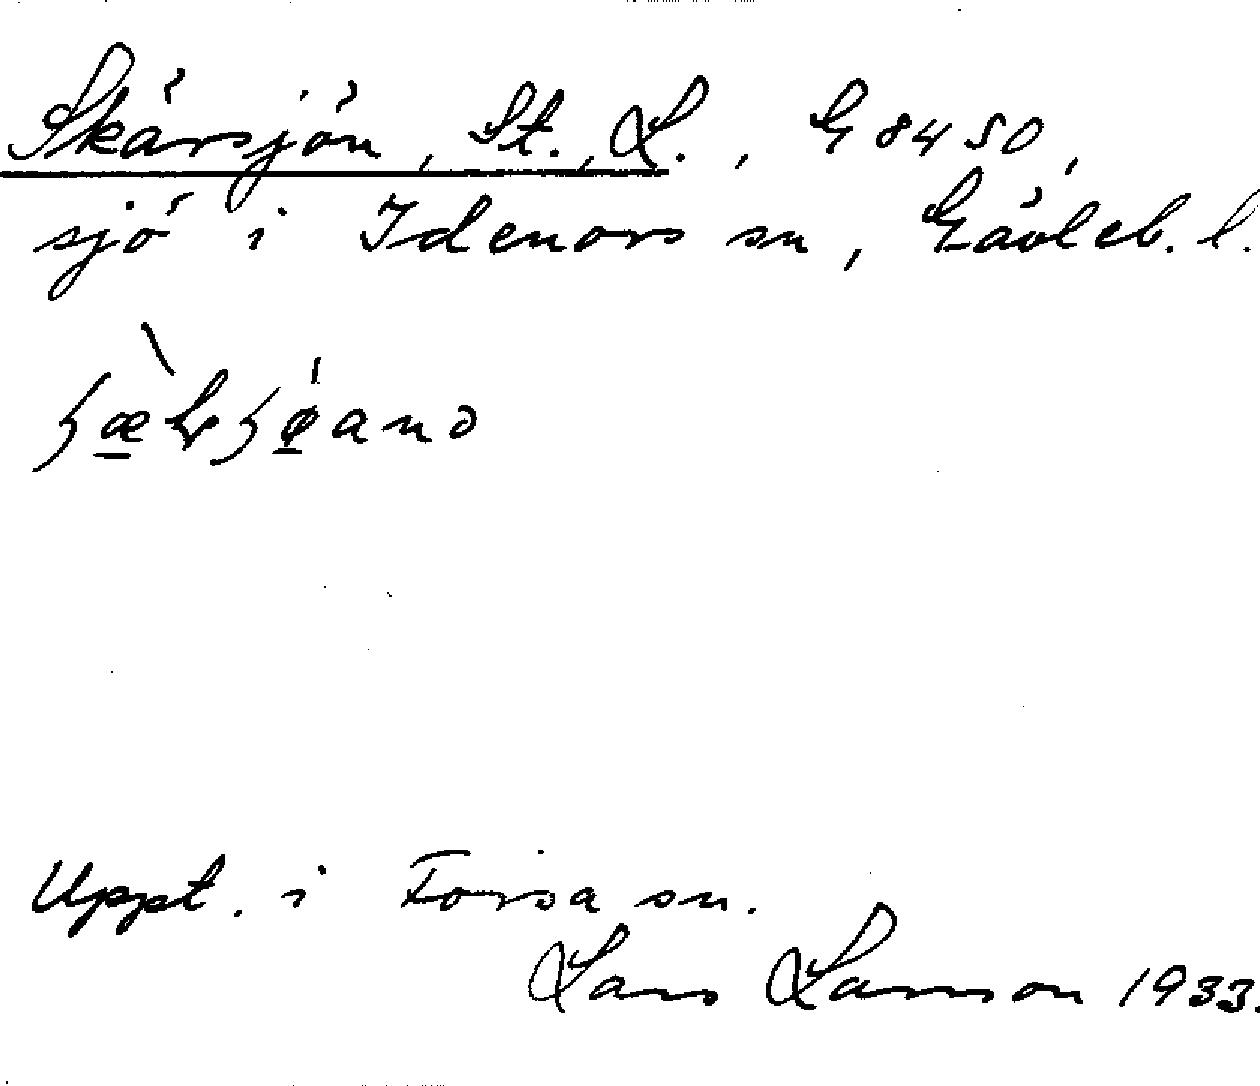 Skärsjön, St., L., G 8450,
sjö i Idenors sn, Gävleb. l.
Uppt. i Forsa sn.
Lars Larsson 1933.